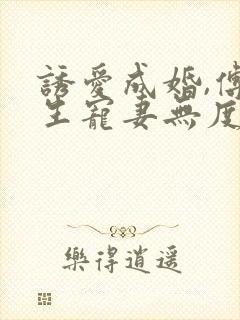 誘愛成婚,傅
生寵妻無度
樂得逍遥